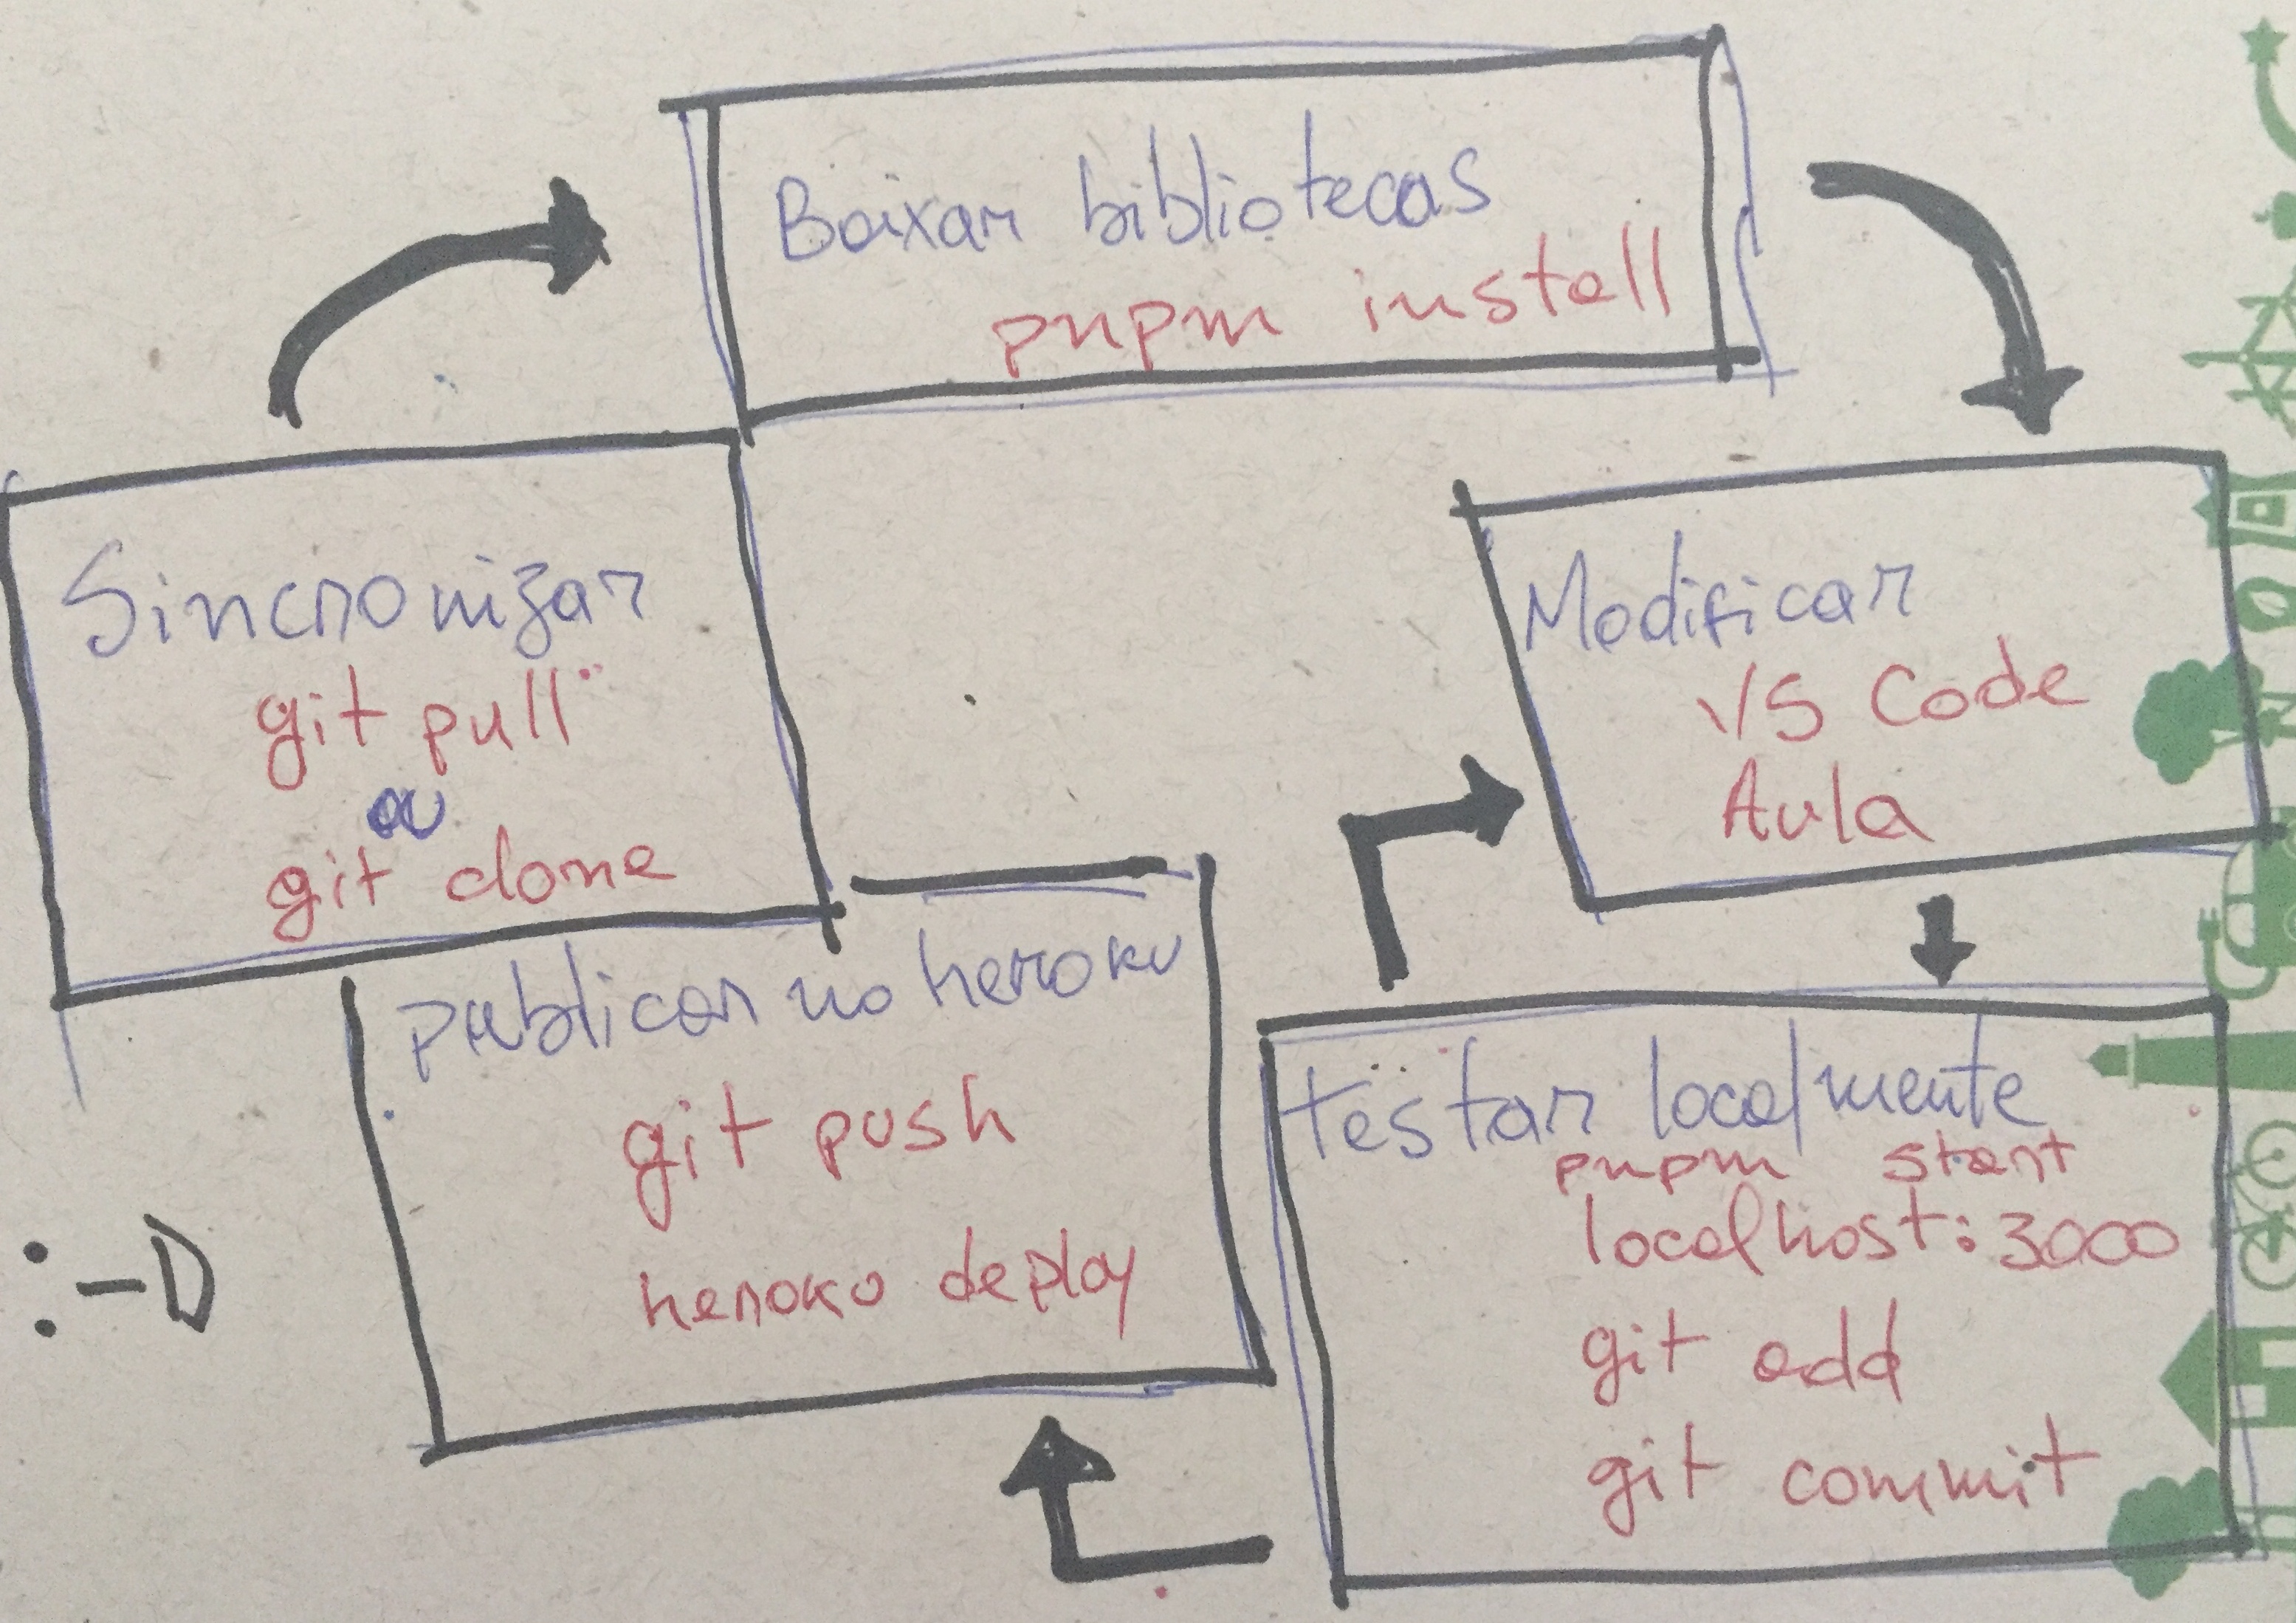 Baixar bibliotecas
pnpm install
Sincronizar
git pull
ou
git clone
Modificar
VS Code
Aula
publicar no heroku
git push
heroku deploy
testar localmente
pnpm start
localhost:3000
git add
git commit
:-D